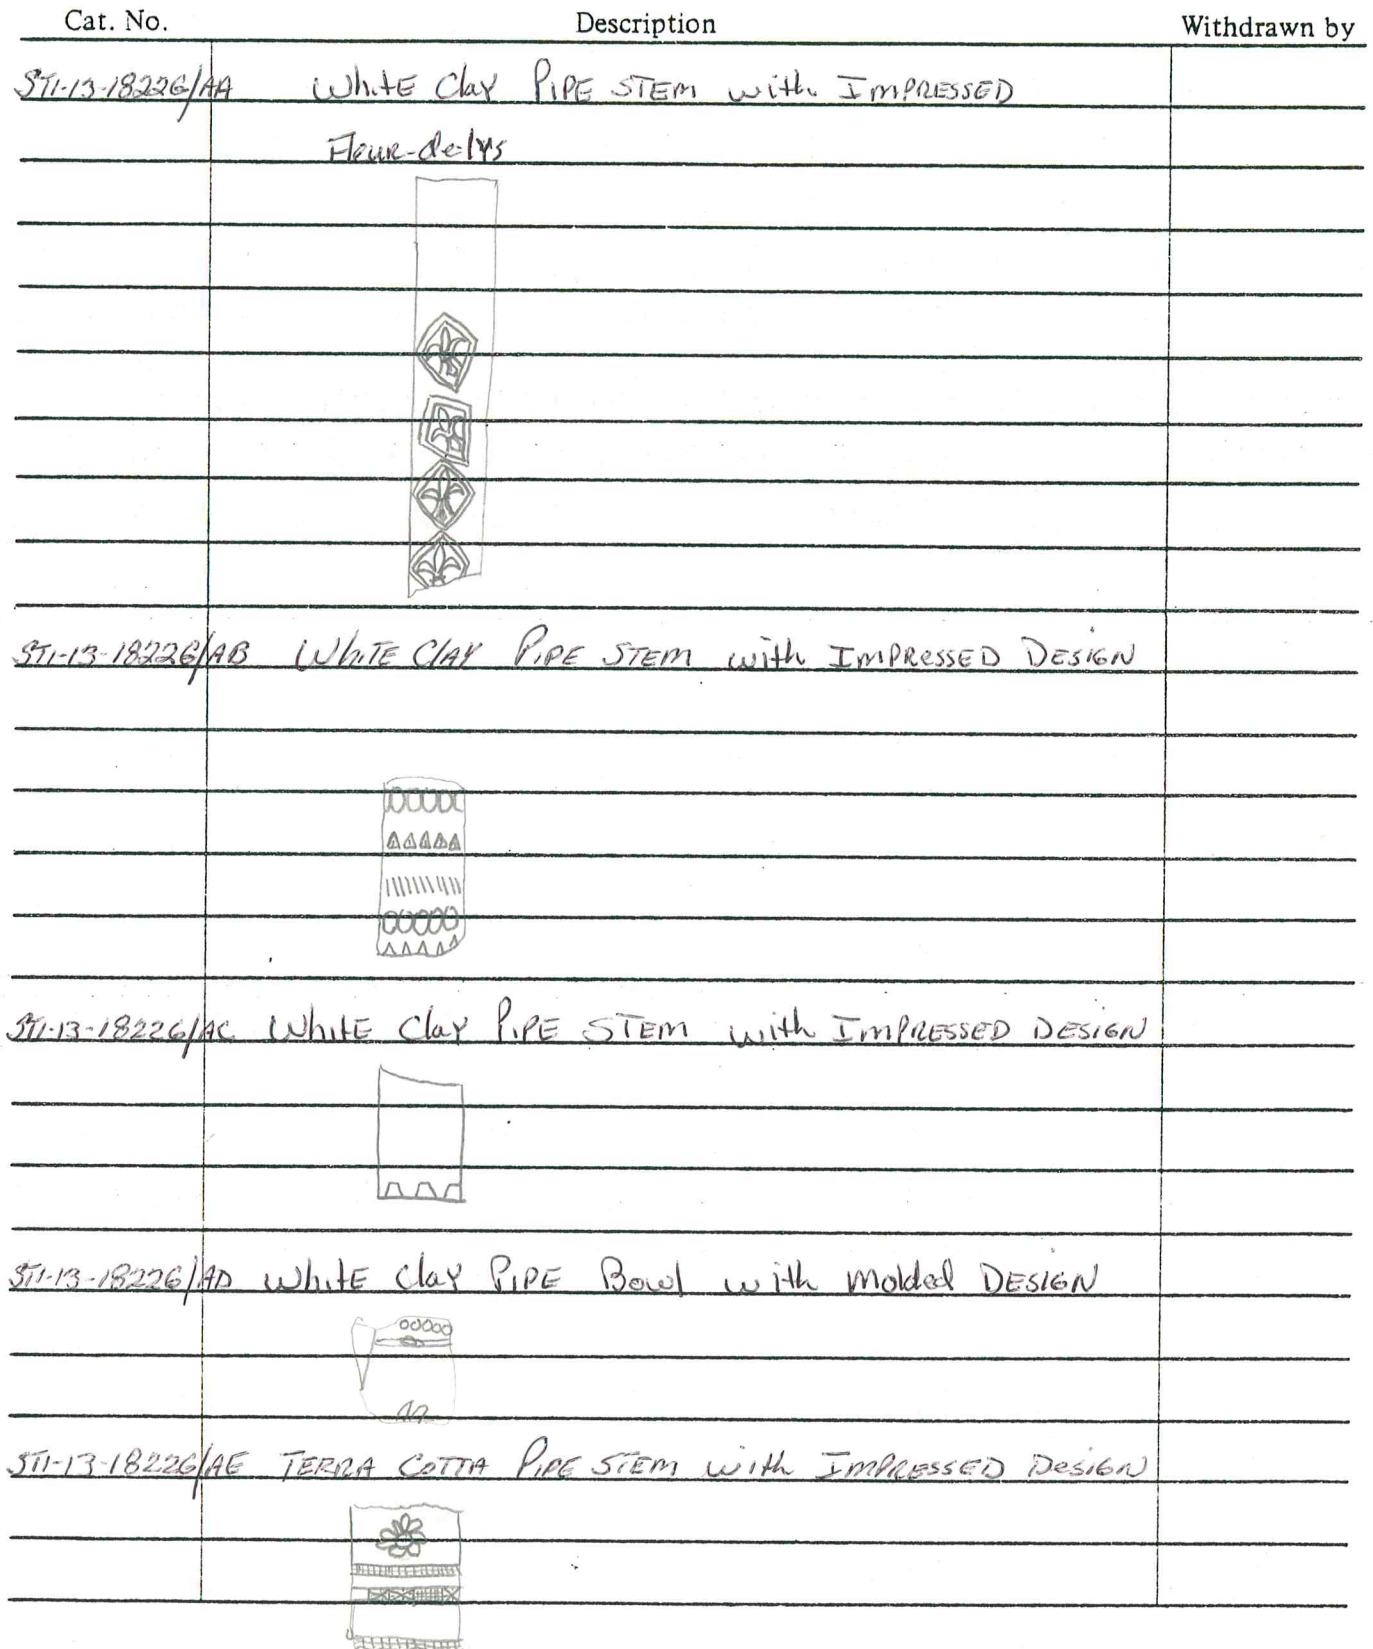 Cat. No. Description Withdrawn by
ST1-13-18226/AA White Clay PIPE STEM with IMPRESSED
Fleur-de-lys
ST1-13-18226/AB WhiTE ClAY PIPE STEM with IMPRESSED DESIGN
ST1-13-18226/AC WhitE Clay PIPE STEM with IMPRESSED DESIGN
ST1-13-18226/AD WhitE Clay PIPE Bowl with Molded DESIGN
ST1-13-18226/AE TERRA COTTA PIPE STEM with IMPRESSED DesiGN